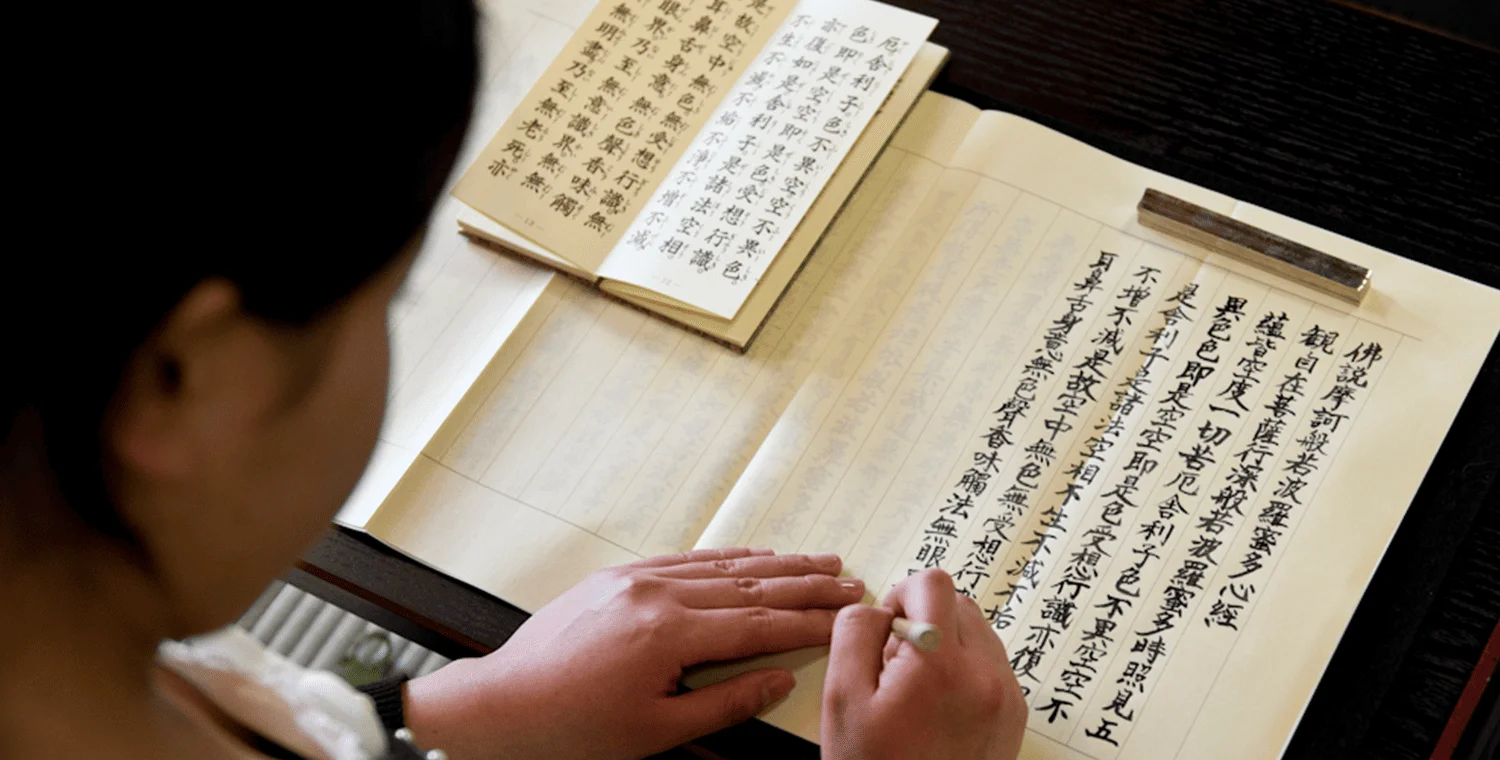 佛説摩訶般若波羅蜜多心經
観自在菩薩行深般若波羅蜜多時照見五
蘊皆空度一切苦厄舍利子色不異空空不
異色色即是空空即是色受想行識亦復
是舍利子是諸法空相不生不滅不垢
不增不減是故空中無色無受想行
耳鼻舌身意無色聲香味觸法無眼
厄舍利子色不異空空不異色
色即是空空即是色受想行識
亦復如是舍利子是諸法空相
不生不滅不垢不淨不增不減
是故空中無色無受想行識無
耳鼻舌身意無色聲香味觸
眼界乃至無意識界無無
無明盡乃至無老死亦